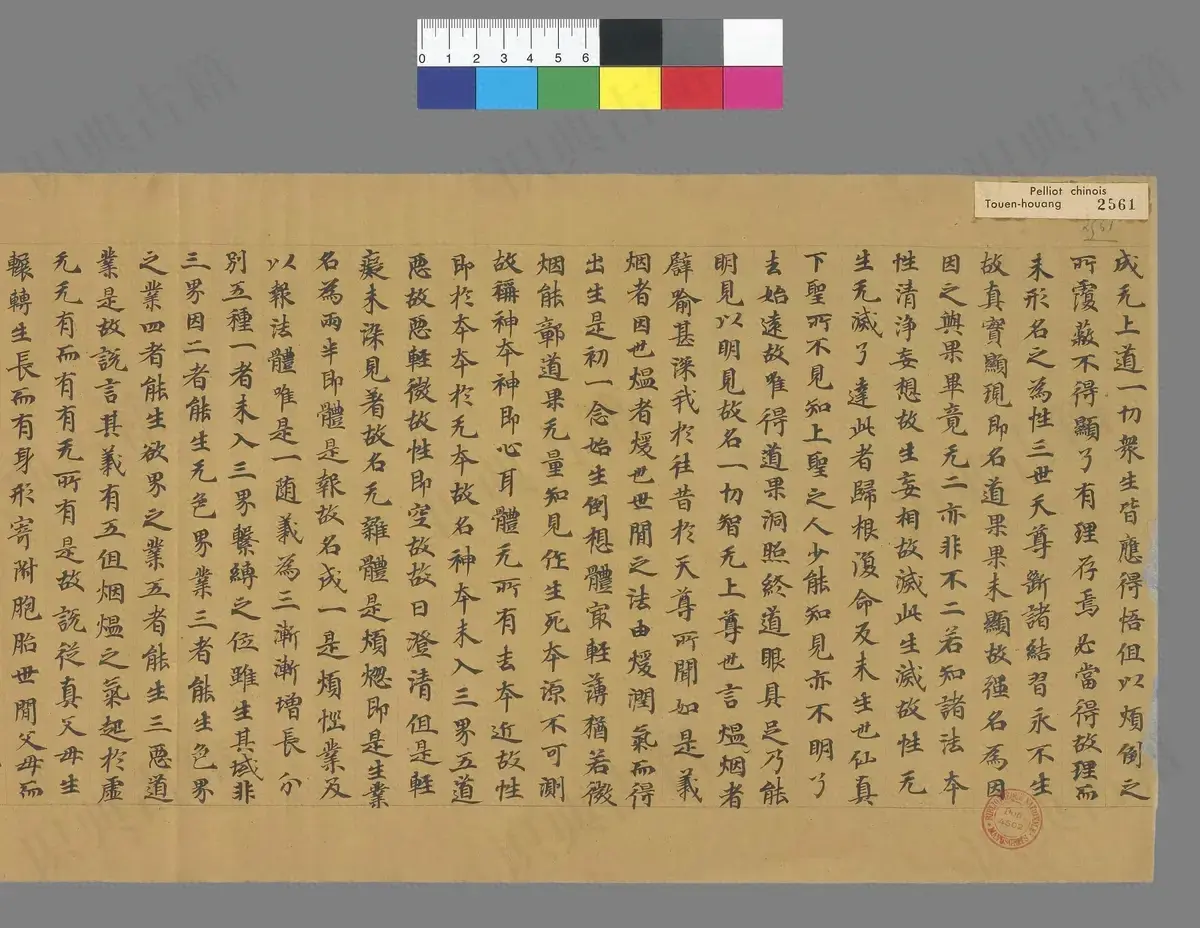 0 1 2 3 4 5 6
Pelliot chinois
Touen-houang 2561
2561
成无上道一切衆生皆應得悟但以煩倒之
所覆蔽不得顯了有理存焉必當得故理而
未形名之為性三世天尊斷諸結習永不生
故真實顯現即名道果果未顯故强名為因
因之與果畢竟无二亦非不二若知諸法本
性清淨妄想故生妄相故滅此生滅故性无
生无滅了達此者歸根復命反未生也仙真
下聖所不見知上聖之人少能知見亦不明了
去始遠故唯得道果洞照終道眼具足乃能
明見以明見故名一切智无上尊也言熅烟者
譬喻甚深我於往昔於天尊所聞如是義
烟者因也熅者煖也世間之法由煖潤氣而得
出生是初一念始生倒想體寂輕薄猶若微
烟能鄣道果无量知見作生死本源不可測
故稱神本神即心耳體无所有去本近故性
即於本本於无本故名神本未入三界五道
惡故惡輕微故性即空故故曰澄清但是輕
癡未染見著故名无雜體是煩惚即是生業
名為兩半即體是報故名戎一是煩惱業及
以報法體唯是一随義為三漸漸增長分
別五種一者未入三界繫縛之位雖生其域非
三界因二者能生无色界業三者能生色界
之業四者能生欲界之業五者能生三惡道
業是故說言其義有五但烟熅之氣起於虛
无无有而有有无所有是故說從真父母生
輾轉生長而有身形寄附胞胎世間父母而